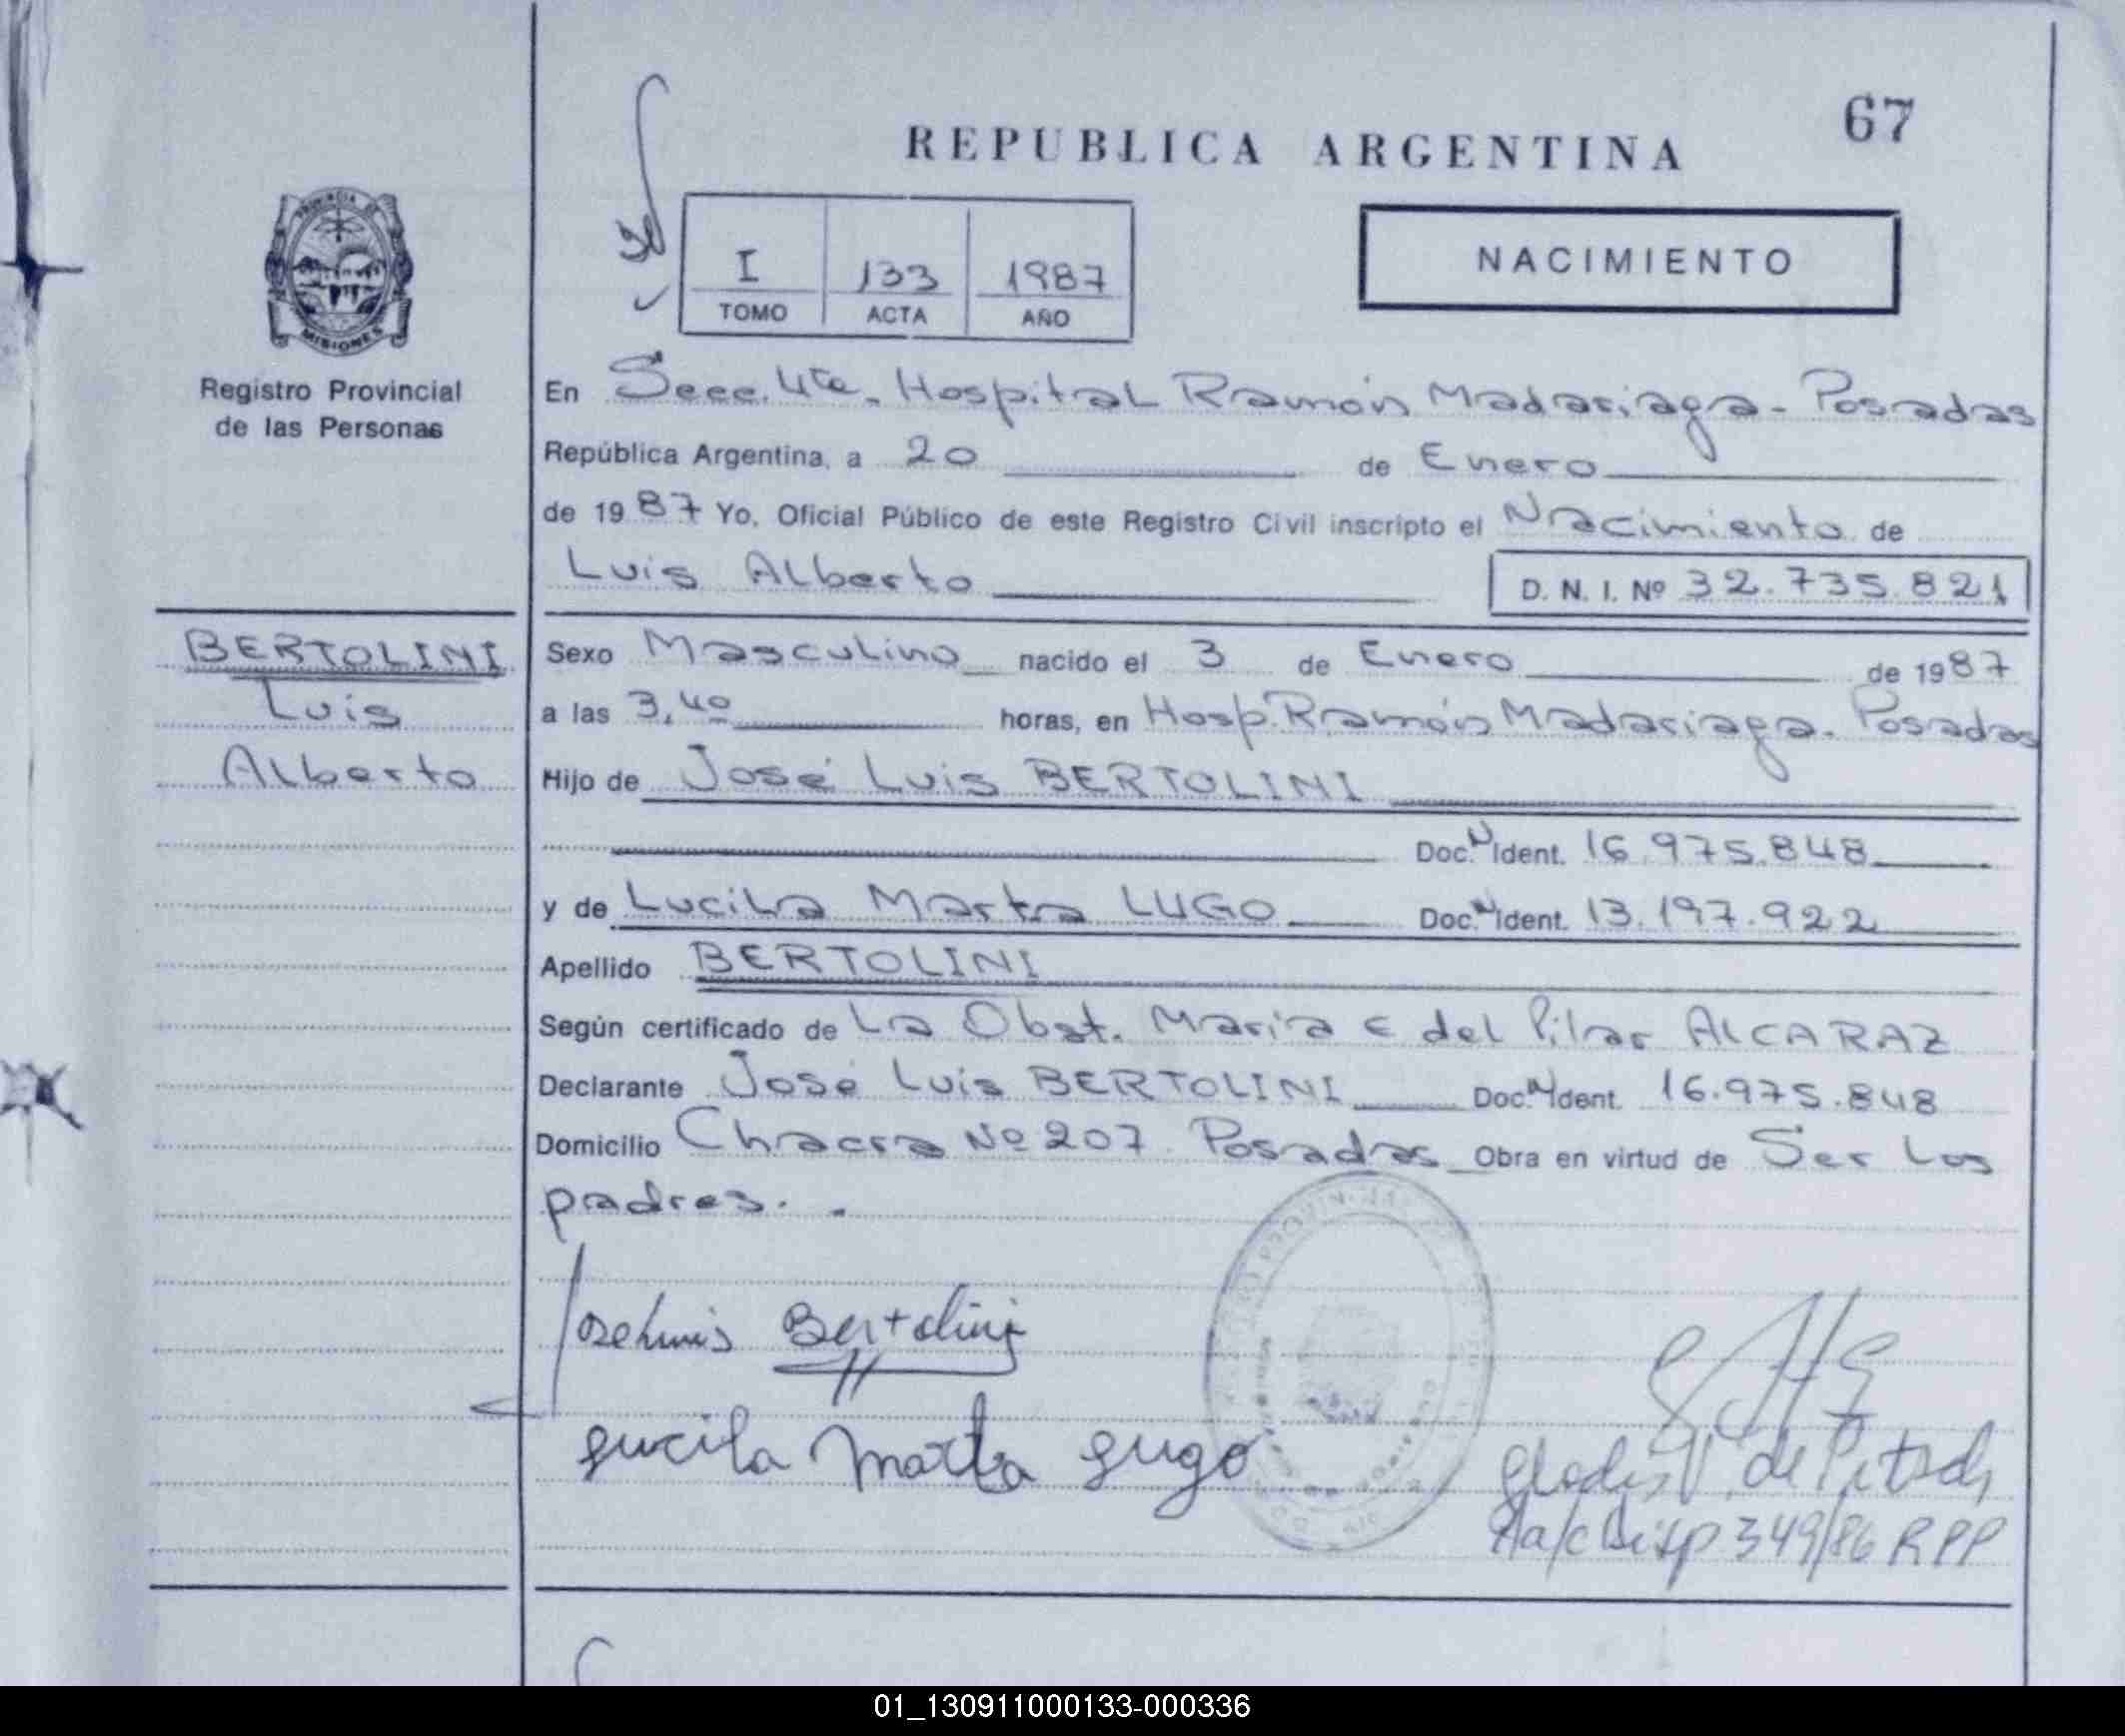 67
REPUBLICA ARGENTINA
NACIMIENTO
I 133 1987
TOMO ACTA AÑO
PROVINCIA DE
MISIONES
Registro Provincial
de las Personas
En Secc. 4ta. Hospital Ramón Madariaga - Posadas
República Argentina, a 20 de Enero
de 1987 Yo, Oficial Público de este Registro Civil inscripto el Nacimiento de
Luis Alberto D. N. I. Nº 32.735.821
BERTOLINI
Luis
Alberto
Sexo Masculino nacido el 3 de Enero de 1987
a las 3,40 horas, en Hosp. Ramón Madariaga. Posadas
Hijo de José Luis BERTOLINI
Doc. N Ident. 16.975.848
y de Lucila Marta LUGO Doc. N Ident. 13.197.922
Apellido BERTOLINI
Según certificado de La Obst. María E del Pilar ALCARAZ
Declarante José Luis BERTOLINI Doc. N Ident. 16.975.848
Domicilio Chacra Nº 207 Posadas Obra en virtud de Ser los
padres. .
Jose Luis Bertolini
Lucila Marta Lugo
Gladis V. de
a/c Disp 349/86 RPP
01_130911000133-000336